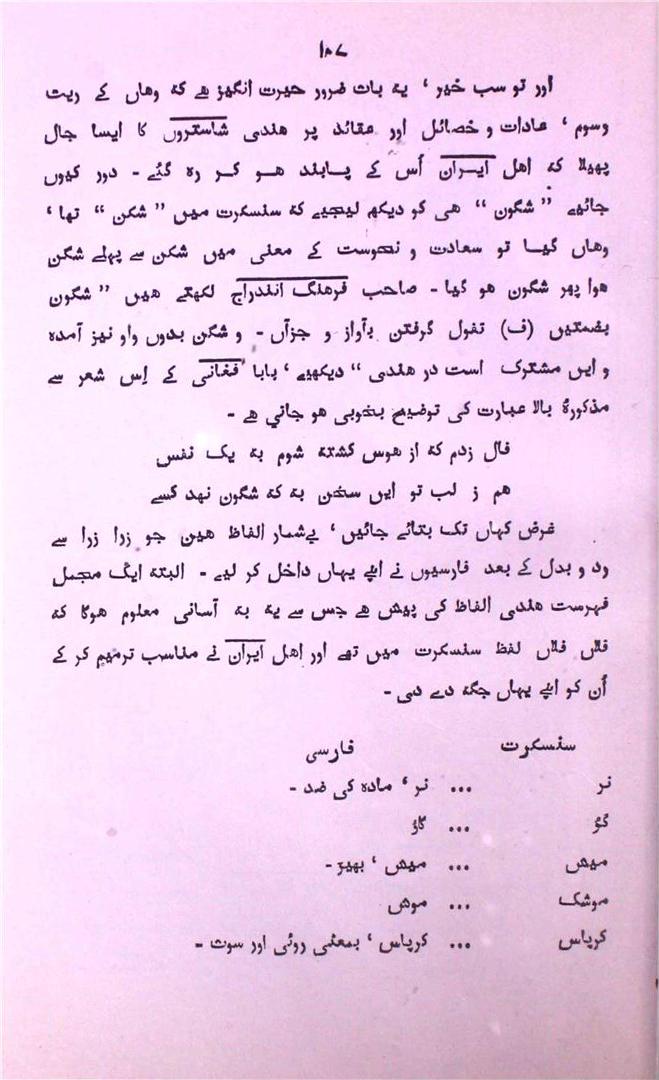 ۱۸۷
اور تو سب خیر ، یہ بات ضرور حیرت انگیز ہے کہ وہاں کے ریت
وسوم ، عادات و خصائل اور عقائد پر ہندی شاستروں کا ایسا جال
پھیلا کہ اہل ایران اُس کے پابند ہو کر رہ گئے - دور کیوں
جائیے ” شگون “ ہی کو دیکھ لیجیے کہ سنسکرت میں ” شکن “ تھا ،
وہاں گیا تو سعادت و نحوست کے معنی میں شکن سے پہلے شگن
ہوا پھر شگون ہو گیا - صاحب فرهنگ انندراج لکھتے ہیں ” شگون
بضمتیں (ف) تفول گرفتن بآواز و جزآں - و شگن بدوں واو نیز آمدہ
و ایں مشترک است در ہندی “ دیکھیے ، بابا فغانی کے اِس شعر سے
مذکورۂ بالا عبارت کی توضیح بخوبی ہو جاتی ہے -
فال زدم کہ از ہوس کشتہ شوم بہ یک نفس
ہم ز لب تو ایں سخن بہ کہ شگون نہد کسے
غرض کہاں تک بتائے جائیں ، بےشمار الفاظ ہین جو زرا زرا سے
رد و بدل کے بعد فارسیوں نے اپنے یہاں داخل کر لیے - البتہ ایک مجمل
فہرست ہندی الفاظ کی پیش ہے جس سے یہ بہ آسانی معلوم ہوگا کہ
فلاں فلاں لفظ سنسکرت میں تھے اور اہل ایران نے مناسب ترمیم کر کے
اُن کو اپنے یہاں جگہ دے دی -
سنسکرت فارسی
نر ... نر ، مادہ کی ضد -
گؤ ... گاؤ
میش ... میش ، بھیڑ -
موشک ... موش
کرپاس ... کرپاس ، بمعنی روئی اور سوت -